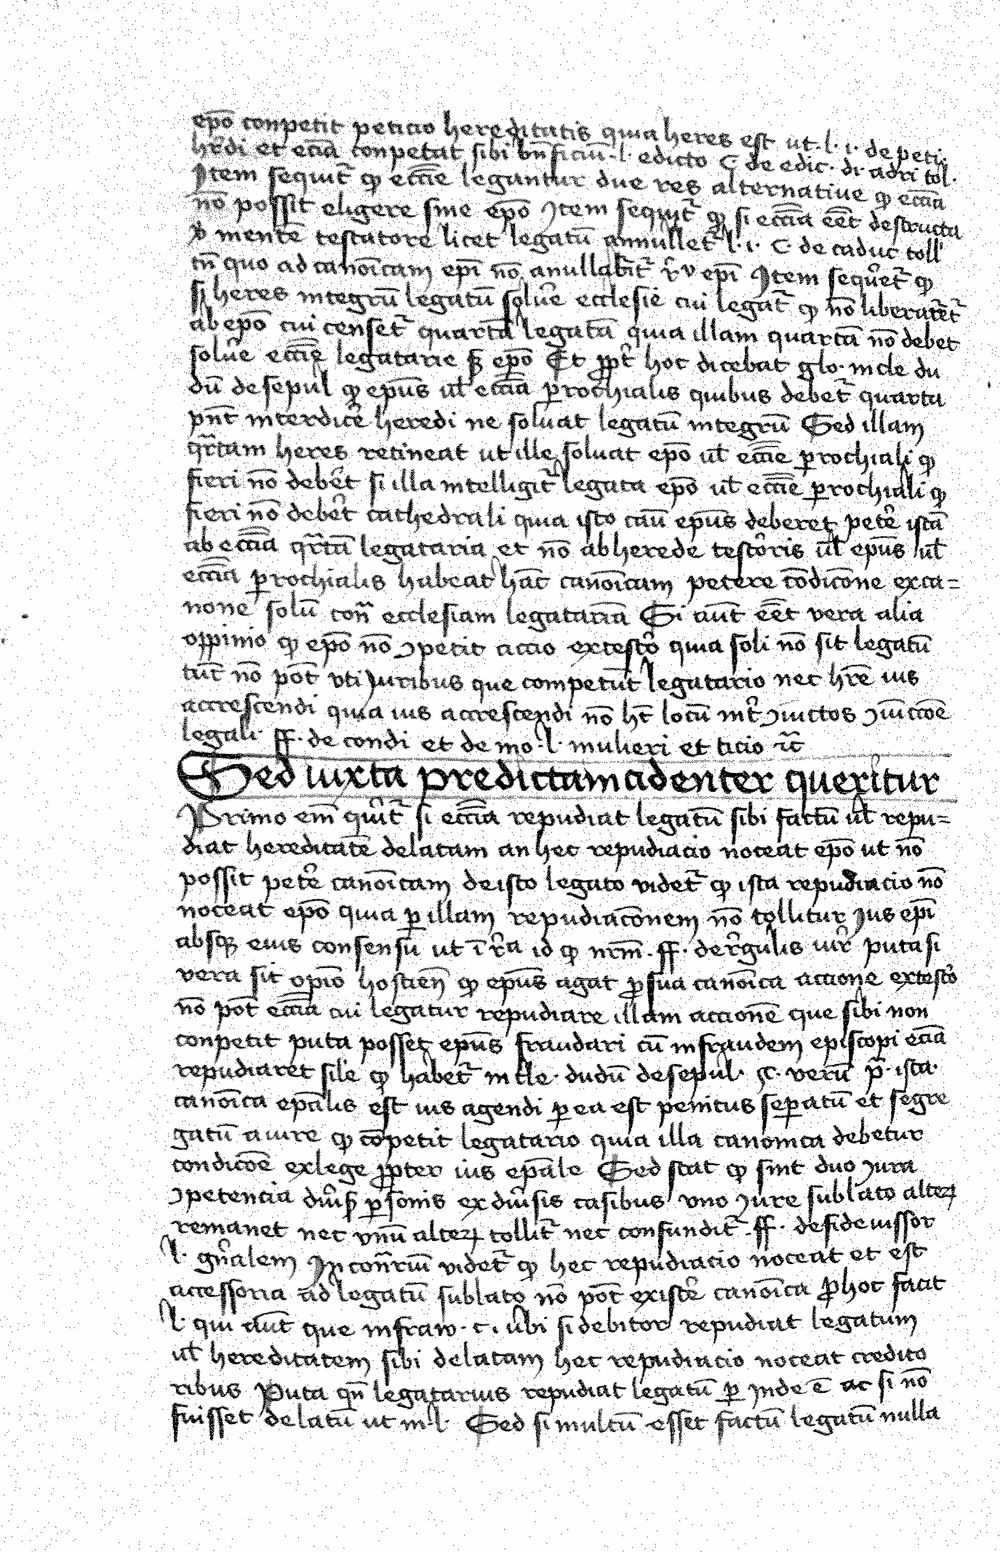 ep̄o conpetit peticio hereditatis quia heres est ut · l · i · de peti ·
hr̄di et eccīa conpetat sibi bn̄ficiū · l · edicto C de edic · di · adri tol ·
Item sequit̄ qꝫ eccīe legantur due res alternatiue qꝫ eccīa
nō possit eligere sine ep̄o Item sequit̄ qꝫ si eccīa eēt destructa
mentē testatore licet legatū annullet̄ l · i · C · de caduc toll
tn̄ quo ad canōicam ep̄i nō anullabit̄ ep̄i Item sequeret̄ qꝫ
si heres integrū legatū soluēre ecclesie cui legat̄ qꝫ nō liberaret̄
ab ep̄o cui censet̄ quartā legatā quia illam quartā nō debet
soluēre eccīe legatarie sꝫ ep̄o Et ꝓpt̄ hoc dicebat glo · in cle du
dū de sepul qꝫ ep̄us ul̄ eccīa ꝑrochialis quibus debet̄ quarta
pn̄t interdicēre heredi ne soluat legatū integrū Sed illam
qr̄tam heres retineat ut ille soluat ep̄o ul̄ eccīe ꝑrochiali qꝫ
fieri nō debēret si illa intelligit̄ legata ep̄o ul̄ eccīe ꝑrochiali qꝫ
fieri nō debēret cathedrali quia isto cāu ep̄us deberet petēre istā
ab eccīa qr̄tā legataria et nō ab herede testōris ul̄ ep̄us ul̄
eccīa ꝑrochialis habeat hāc canōicam petere cōdicōne ex ca=
none solū con̄ ecclesiam legatariā Si aut̄ eēt vera alia
oppinio qꝫ ep̄o nō ꝯpetit accio ex testō quia soli nō sit legatū
tūc nō pōt vti Juribus que competūt legatario nec hr̄e ius
accrescendi quia ius accrescendi nō hꝫ locū int̄ ꝯiūctos ꝯiūccōe
legali · ff · de condi et de mo · l · mulieri et ticio ꝛc̄
Sed iuxta predictam cidenter queritur
Primo em̄ querit̄ si eccīa repudiat legatū sibi factū ul̄ repu=
diat hereditatē delatam an hec repudiacio noceat ep̄o ut nō
possit petēre canōicam de isto legato videt̄ qꝫ ista repudiacio nō
noceat ep̄o quia ꝑ illam repudiacōnem nō tollitur Jus ep̄i
absqꝫ eius consensu ut ī r̄a id qꝫ nr̄m · ff · de rēgulis iur̄ puta si
vera sit opīo hostien̄ qꝫ ep̄us agat ꝓ sua canōica accione ex testō
nō pōt eccīa cui legatur repudiare illam accionē que sibi non
conpetit puta posset ep̄us fraudari cū in fraudem episcopi eccīa
repudiaret sil̄e qꝫ habet̄ in cle · dudū de sepul · §· verū p̄ · ista ·
canōica epalis est ius agendi ꝑ ea est penitus seꝑatū et segre
gatū a iure qꝫ cōpetit legatario quia illa canonica debetur
condicōe ex lege ꝓpter ius ep̄ale Sed stat qꝫ sint duo Jura
ꝯpetencia diūsꝭ ꝑsonis ex diūsis casibus vno Jure sublato alterꝫ
remanet nec vnū alterꝫ tollit̄ nec confundit̄ · ff · de fideiussor
l · gn̄alem In con̄riū videt̄ qꝫ hec repudiacio noceat et est
accessoria ad legatū sublato nō pōt existēre canōica ꝓ hoc facit
l · qui aut̄ que in frau · c · ubi si debitor repudiat legatum
ul̄ hereditatem sibi delatam hec repudiacio noceat credito
ribus Puta qn̄ legatarius repudiat legatū ꝑ inde ē ac si nō
fuisset delatū ut in l · Sed si multū esset factū legatū nulla